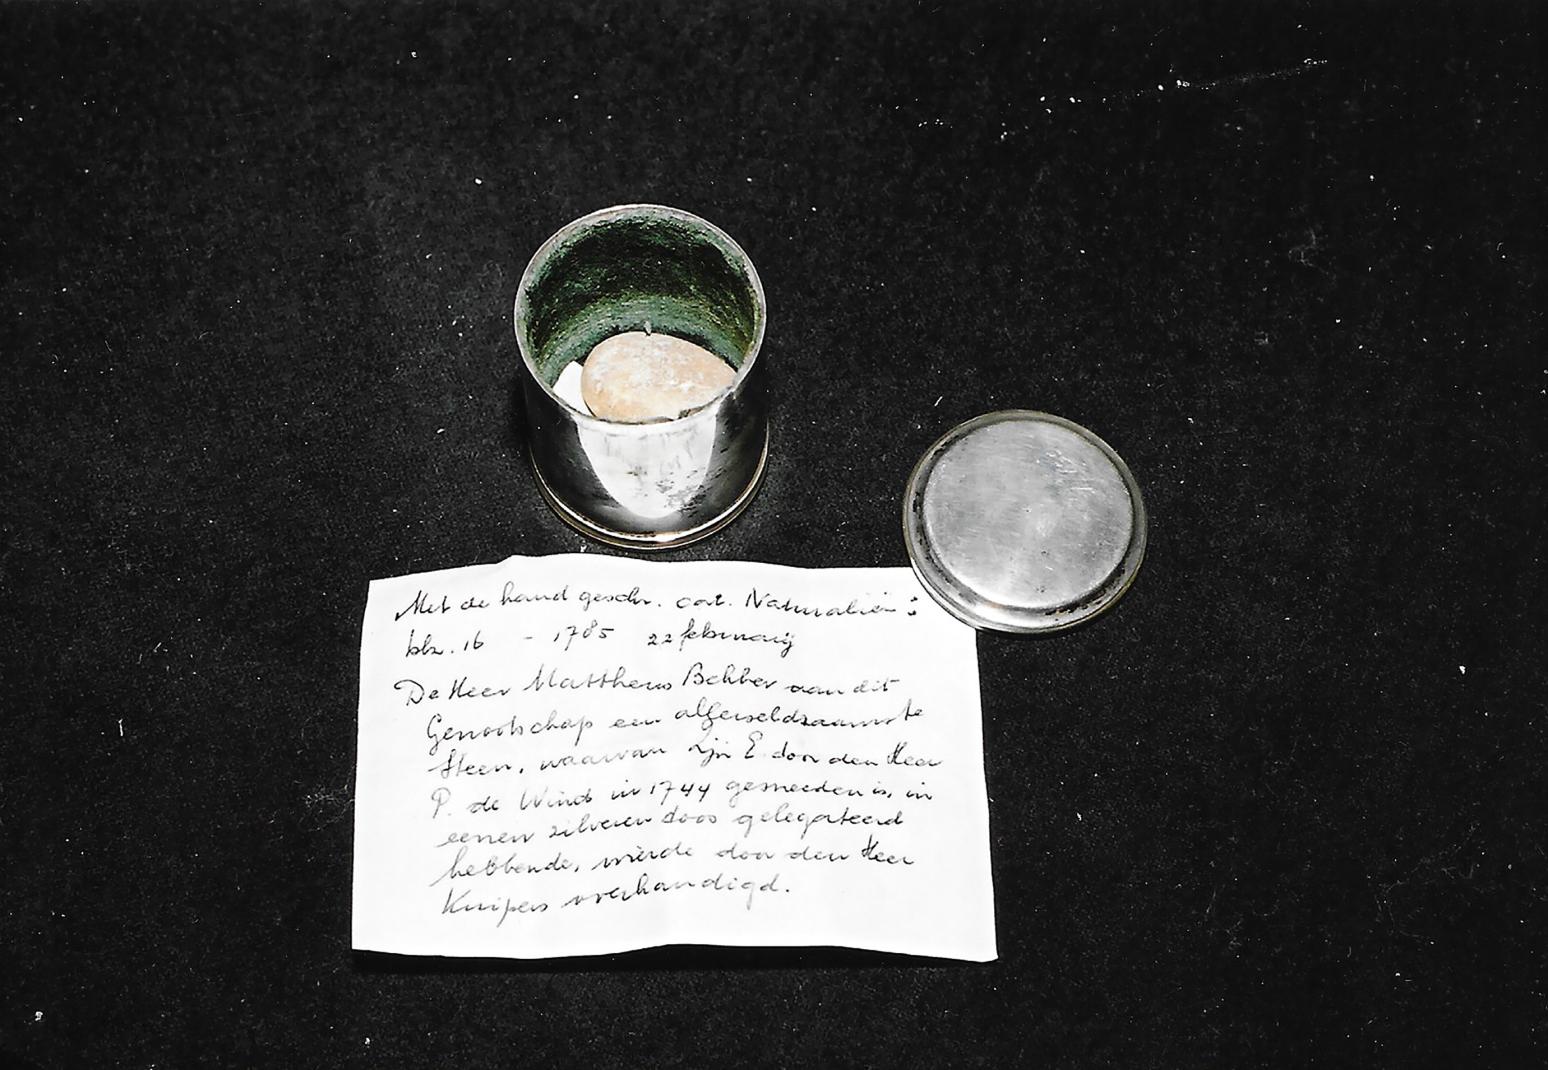 Met de hand geschr. cat. Naturaliën:
blz. 16 - 1785 22 februarij
De Heer Matthews Bekker aan dit
Genootschap een allerseldzaamste
Steen, waarvan zijn E. door den Heer
P. de Wind in 1744 gesneeden is, in
eenen zilveren doos gelegateerd
hebbende, wierde door den Heer
Kuipers overhandigd.